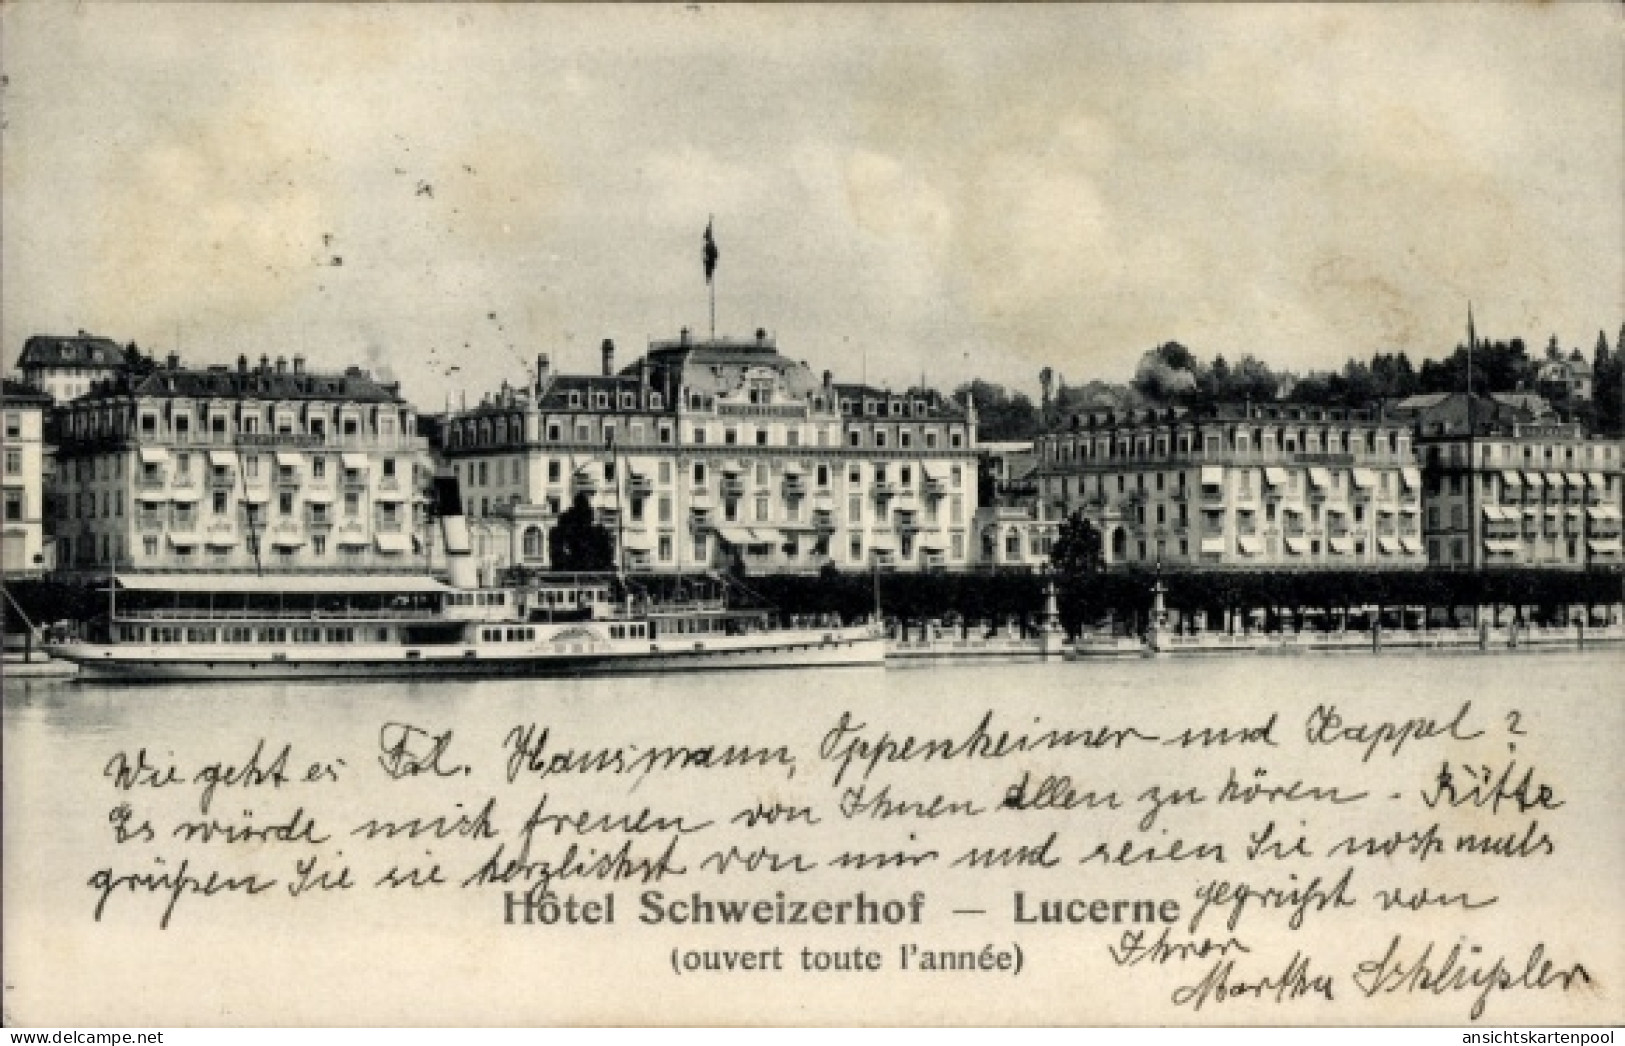 Wie geht es Frl. Hausmann, Oppenheimer und Kappel?
Es würde mich freuen von Ihnen Allen zu hören. Bitte
grüßen Sie sie herzlichst von mir und seien Sie nochmals
gegrüßt von
Hôtel Schweizerhof — Lucerne
(ouvert toute l'année)
Ihrer
Martha
ansichtskartenpool